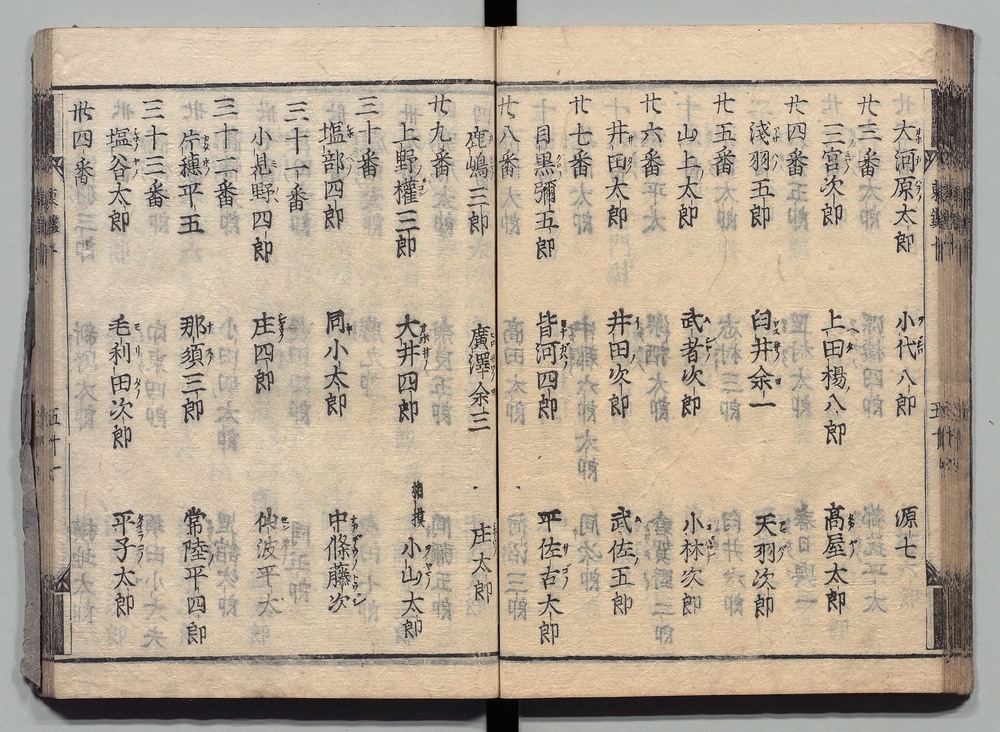 大河原太郎 小代八郎 源七
廿三番
三宮次郎 上田楊八郎 高屋太郎
廿四番
淺羽五郎 臼井余一 天羽次郎
廿五番
山上太郎 武者次郎 小林次郎
廿六番
井田太郎 井田次郎 武佐五郎
廿七番
目黒彌五郎 皆河四郎 平佐古太郎
廿八番
鹿嶋三郎 廣澤余三 庄太郎
廿九番
上野權三郎 大井四郎 相摸小山太郎
三十番
塩部四郎 同小太郎 中條藤次
三十一番
小見野四郎 庄四郎 仙波平太
三十二番
片穗平五 那須三郎 常陸平四郎
三十三番
塩谷太郎 毛利田次郎 平子太郎
卅四番